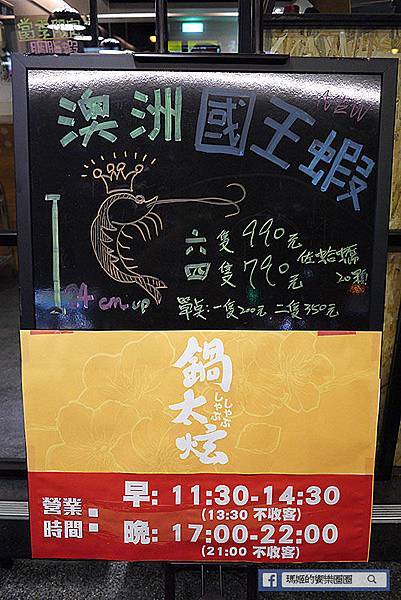 NEW
澳洲國王蝦
六隻 990元
四隻 790元
佐蛤蠣
20顆
24 cm up
單點:一隻200元 二隻350元
鍋太炫
しゃぶ
しゃぶ
營業時間:
早: 11:30-14:30
(13:30 不收客)
晚: 17:00-22:00
(21:00 不收客)
瑪姬的饗樂園圈